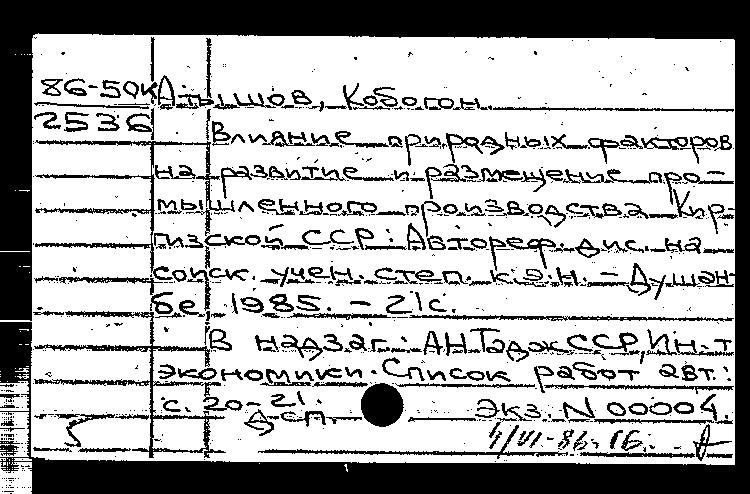 86-50к Атышов, Кобогон.
2536 Влияние природных факторов
на развитие и размещение про-
мышленного производства Кир-
гизской ССР: Автореф. дис. на
соиск. учен. степ. к.э.н. - Душан-
бе 1985. - 21с.
В надзаг.: АН ТаджССР, Ин-т
экономики. Список работ авт.:
с. 20-21.
Дсп. Экз. N 00004.
4/VI-86.